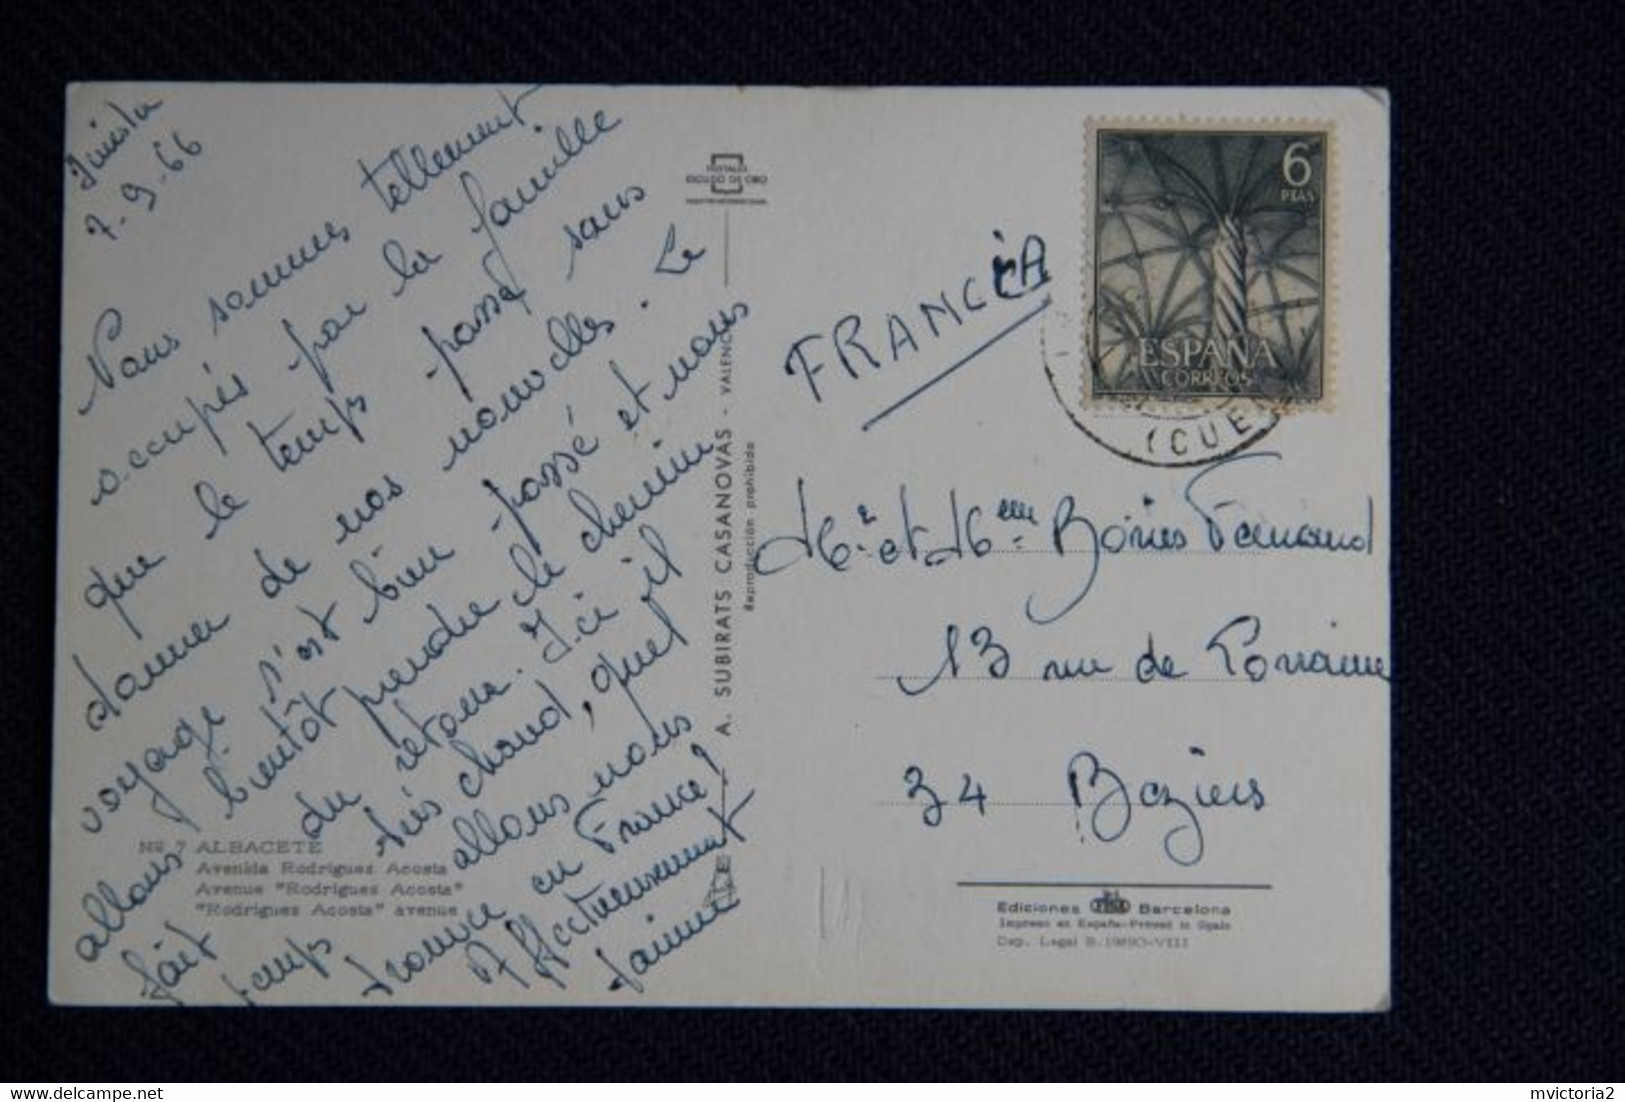 Iniesta
7-9-66
Nous sommes tellement
occupés par la famille
que le temps passe sans
donner de nos nouvelles. Le
voyage s'est bien passé et nous
allons bientôt prendre le chemin
du retour. Ici il
fait très chaud, quel
temps allons nous
trouver en France!
Affectueusement
Janine
Nº 7 ALBACETE
Avenida Rodríguez Acosta
Avenue "Rodríguez Acosta"
"Rodríguez Acosta" avenue
POSTALES
ESCUDO DE ORO
A. SUBIRATS CASANOVAS - VALENCIA
Reproducción prohibida
6
PTAS
ESPAÑA
CORREOS
(CUE
FRANCIA
Mr et Mme Bories Fernand
13 rue de Lorraine
34 Béziers
Ediciones Barcelona
Impreso en España-Printed in Spain
Dep. Legal B.19890-VIII
mvictoria2